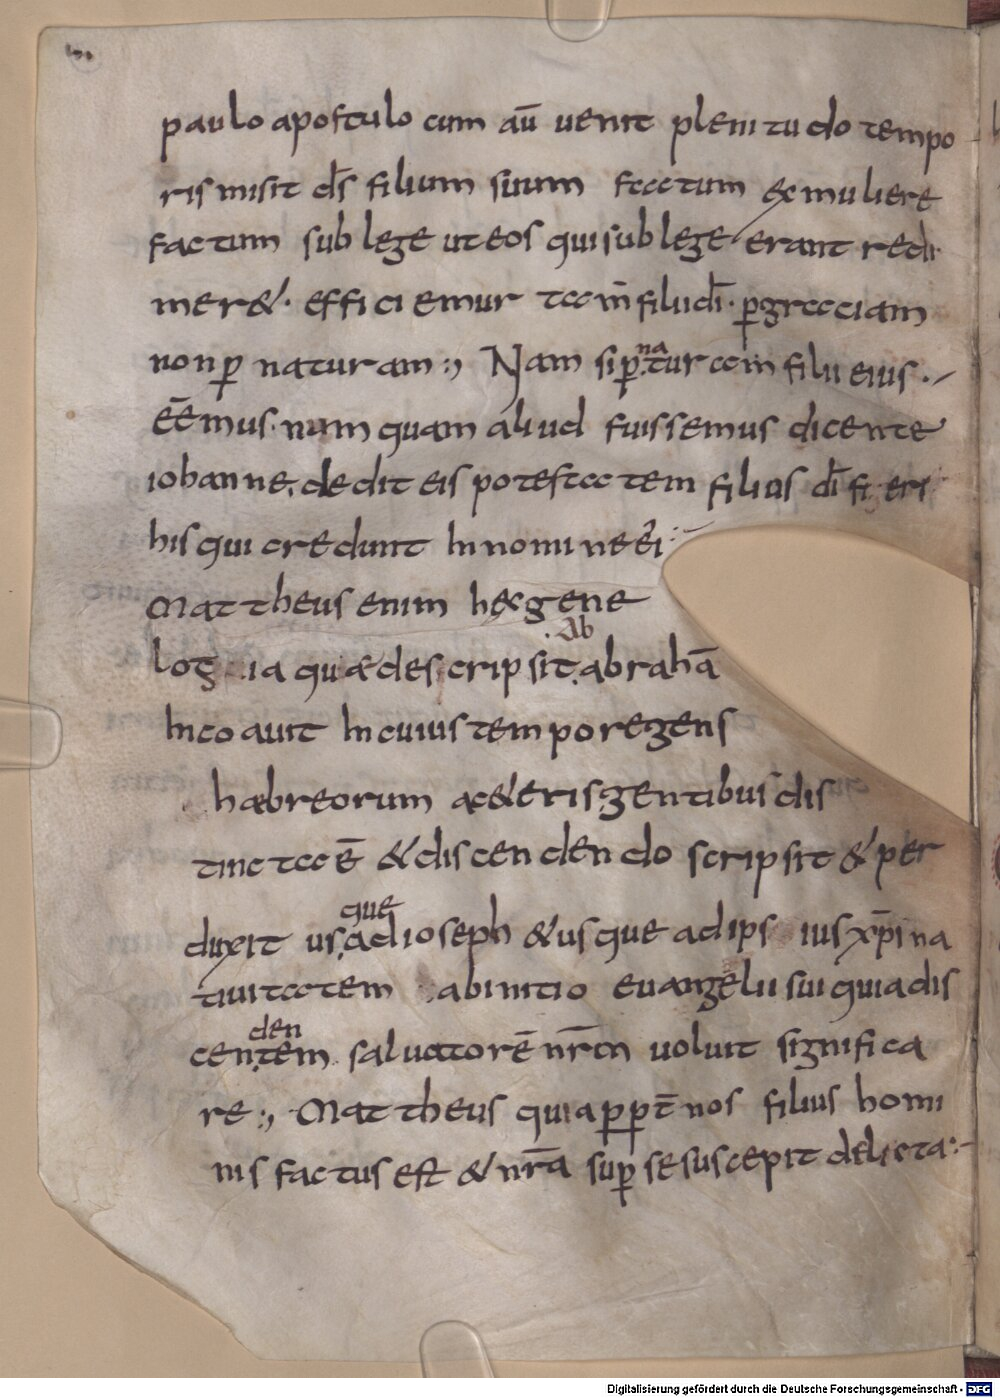 paulo apostulo cum aū uenit plenitudo tempo
ris misit d̄s filium suum factum ex muliere
factum sub lege ut eos qui sub lege erant redi
mer&. efficiemur tam̄ filii d̄i. ꝑ graciam
non ꝑ naturam:, Nam si ꝑ naturam filii eius.
eēmus. numquam aliud fuissemus dicente
iohanne. dedit eis potestatem filius d̄i fieri
his qui credunt In nomine ei
Mattheus enim hec gene
Ab
log ia quæ descripsit. abrahā
Incoauit In cuius tempore gens
hæbreorum a c&eris gentibus dis
tincta ē & discendendo scripsit & per
que
duxit us. ad ioseph & usque ad ips ius xp̄i na
tiuitatem ab initio euangelii sui quia dis
den
cen.tem saluatorē nr̄m uoluit significa
re:, Mattheus quia ꝓꝑt̄ nos filius homi
nis factus est & nr̄a suꝑ se suscepit delicta:-
Digitalisierung gefördert durch die Deutsche Forschungsgemeinschaft - DFG